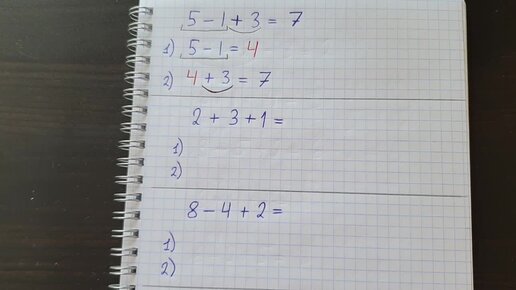 5 - 1 + 3 = 7
1) 5 - 1 = 4
2) 4 + 3 = 7
2 + 3 + 1 =
1)
2)
8 - 4 + 2 =
1)
2)